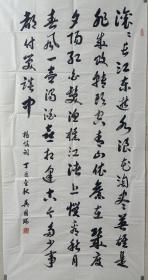 滚滚长江东逝水浪花淘尽英雄是
非成败转头空青山依旧在几度
夕阳红白发渔樵江渚上惯看秋月
春风一壶浊酒喜相逢古今多少事
都付笑谈中
杨慎词